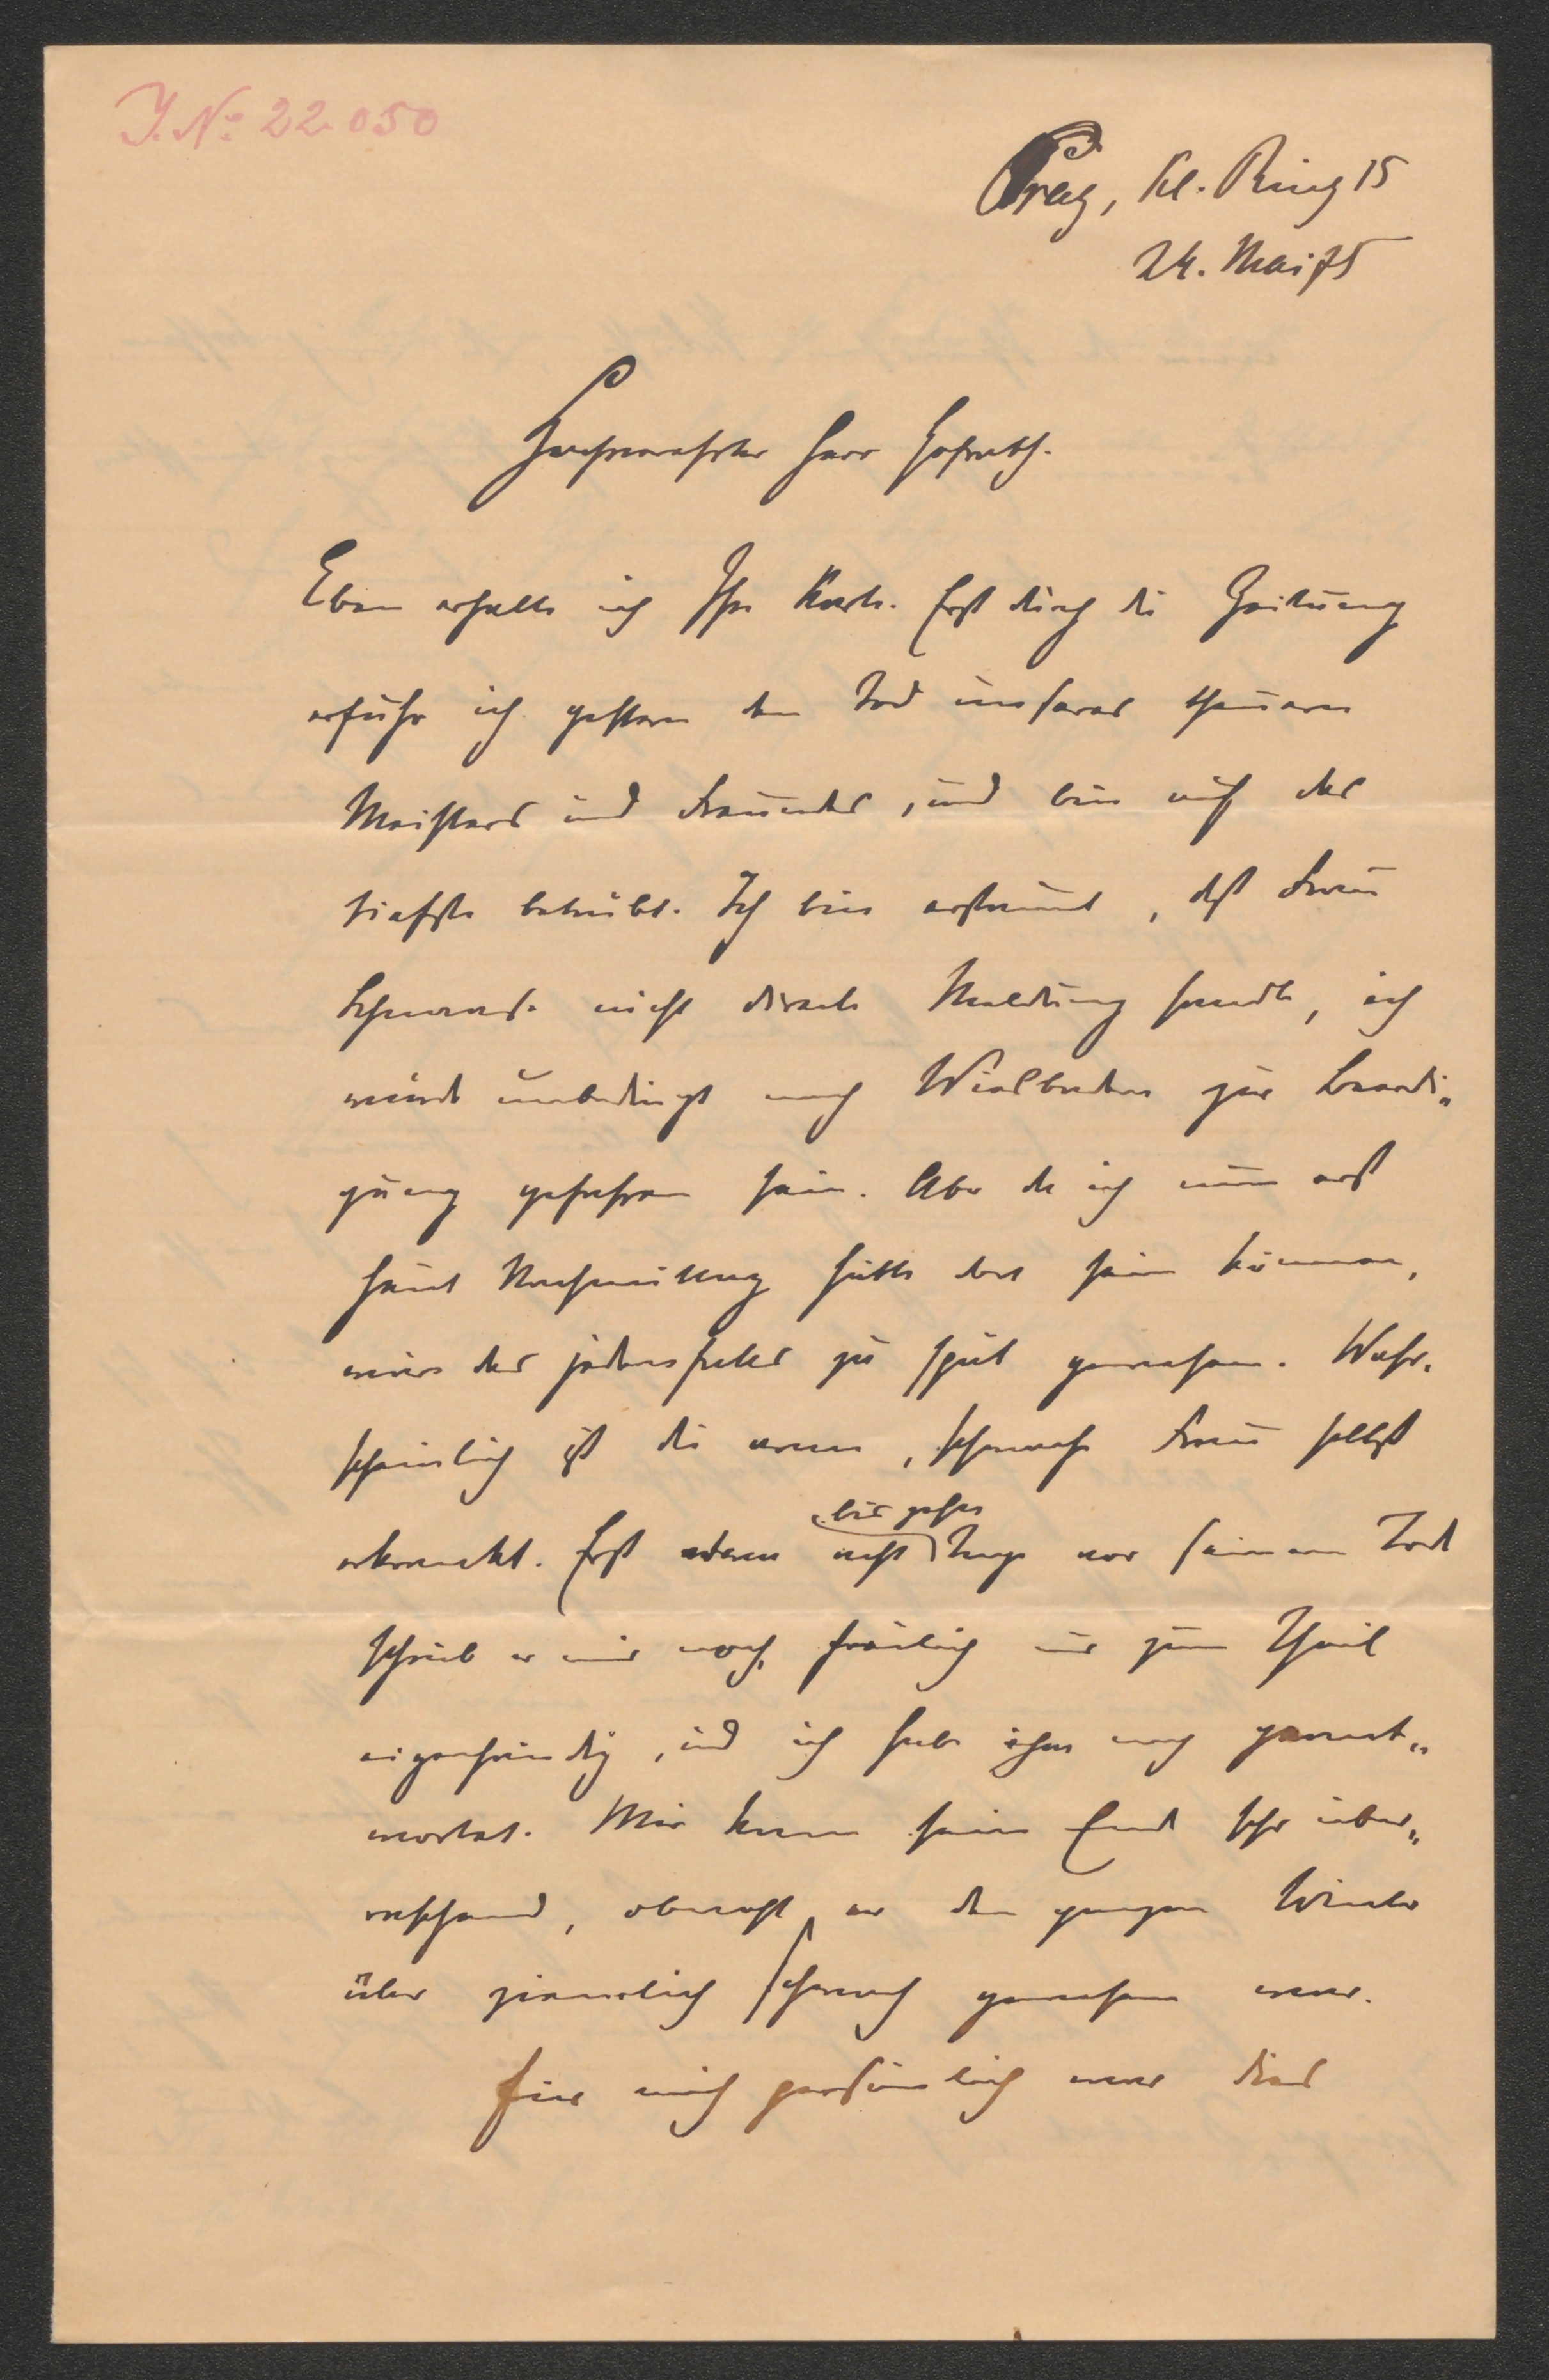 J. No: 22.050
Prag, Kl. Ring 15
24. Mai 75
Hochverehrter Herr Hofrath.
Eben erhalte ich Ihre Karte. Erst durch die Zeitung
erfuhr ich gestern den Tod unseres theuern
Meisters und Freundes, und bin auf das
tiefste betrübt. Ich bin erstaunt, daß Frau
nicht directe Meldung sandte, ich
würde unbedingt nach Wiesbaden zur Beerdi„
gung gefahren sein. Aber da ich nun erst
heute Nachmittag hätte dort sein können,
wäre das jedenfalls zu spät gewesen. Wahr„
scheinlich ist die arme, schwache Frau selbst
erkrankt. Erst etwa acht bis zehn Tage vor seinem Tode
schrieb er mir noch, freilich nur zum Theil
eigenhändig, und ich habe ihm noch geant„
wortet. Mir kam sein Ende sehr über„
raschend, obwohl er den ganzen Winter
über ziemlich schwach gewesen war.
Für mich persönlich war dies